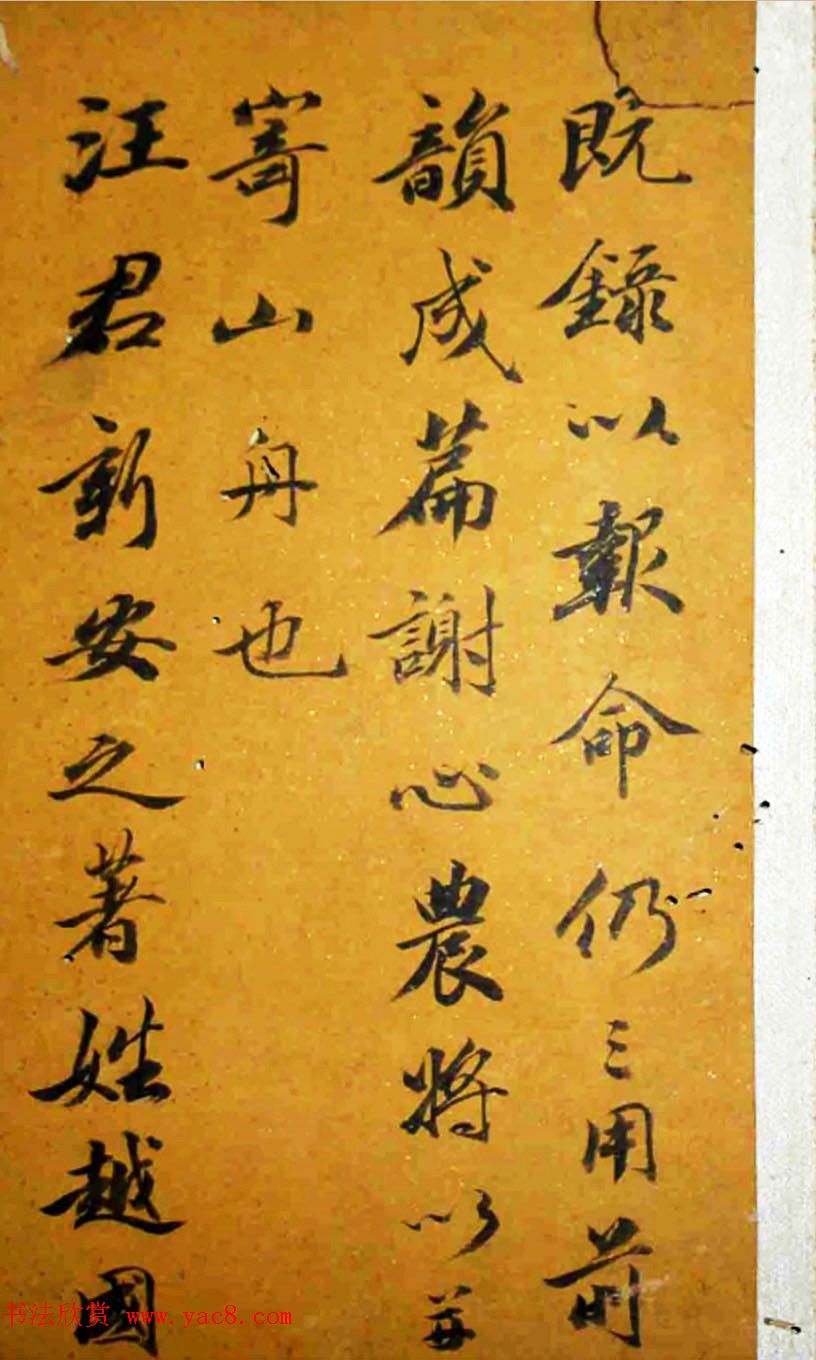 既錄以報命仍三用前
韻成篇謝心農將以并
寄山舟也
汪君新安之著姓越國
书法欣赏 www.yac8.com